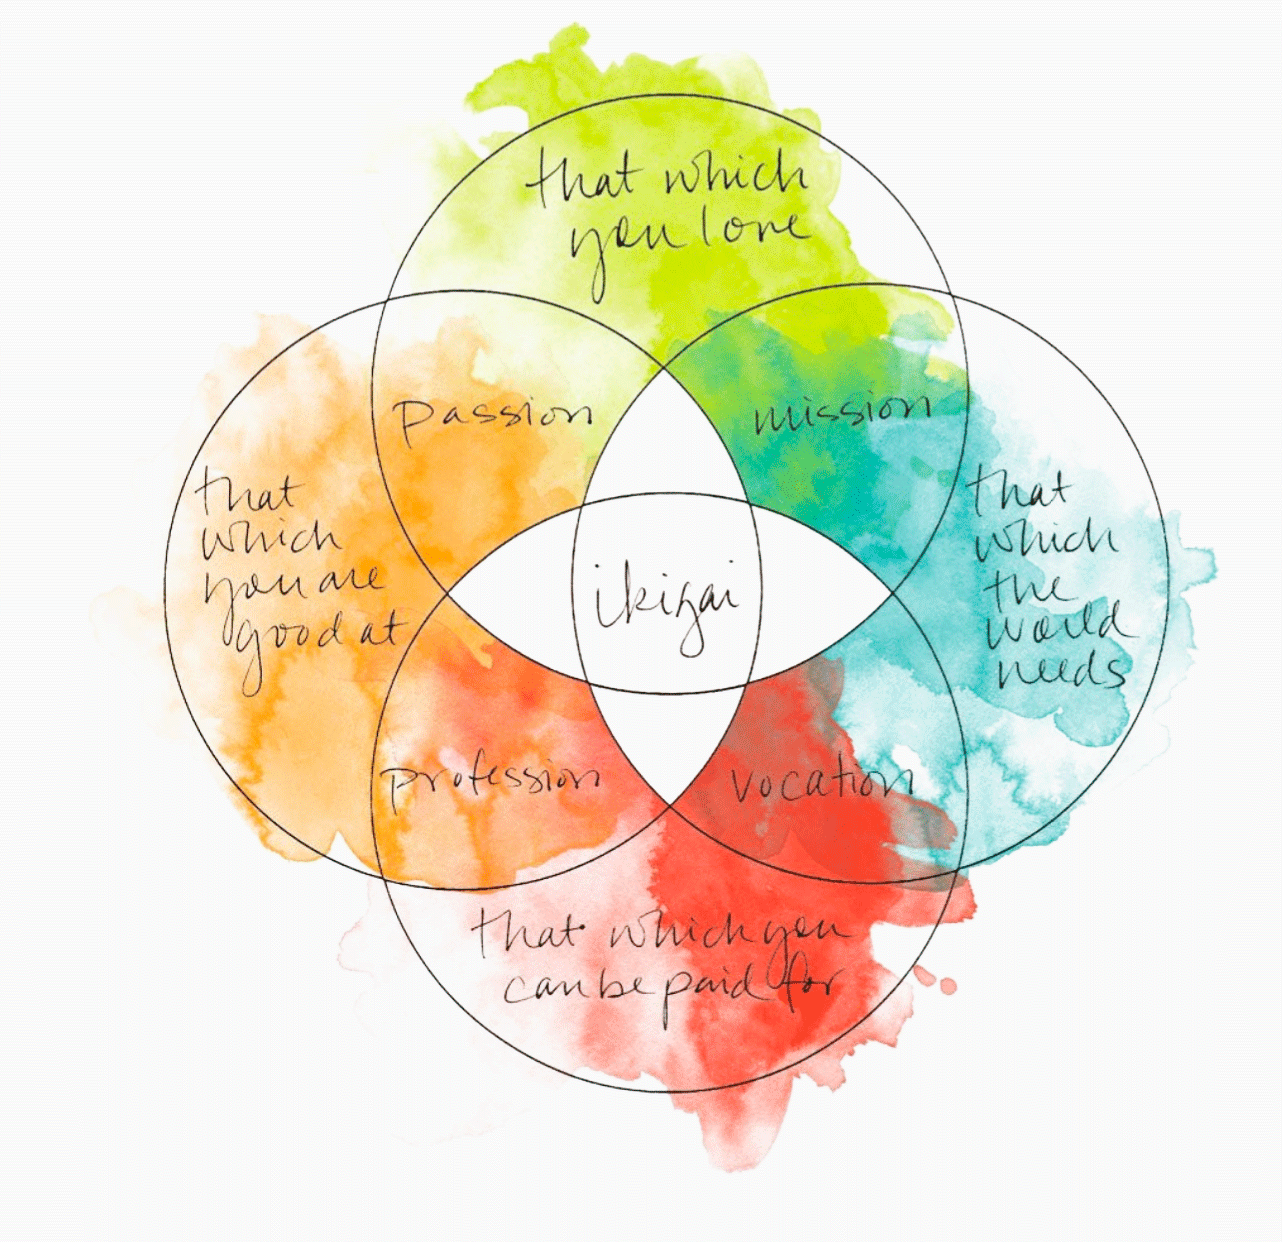 that which
you love
passion
mission
that
which
you are
good at
ikigai
that
which
the
world
needs
profession
vocation
that which you
can be paid for